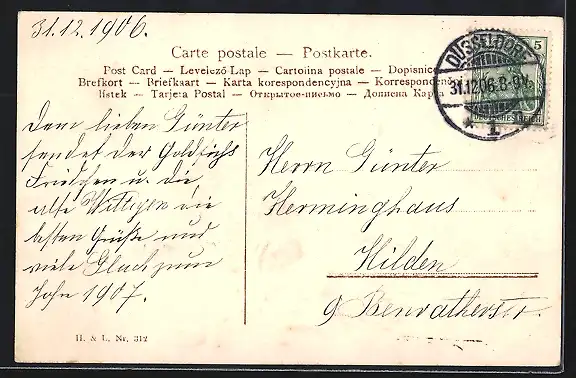 31.12.1906.
Carte postale — Postkarte.
Post Card — Levelező-Lap — Cartolina postale — Dopisnice
Brefkort — Briefkaart — Karta korespondencyjna — Korrespondenční
lístek — Tarjeta Postal — Открытое-письмо — Дописна Карта
DÜSSELDORF
31.12.06.8-9N.
* 1
5
Dem lieben Günter
sendet der Goldfisch
Friedchen u. die
alte die
besten Grüße und
viele Glück zum
Jahr 1907.
Herrn Günter
Herminghaus
Hilden
9 Benratherstr.
H. & L. Nr. 312